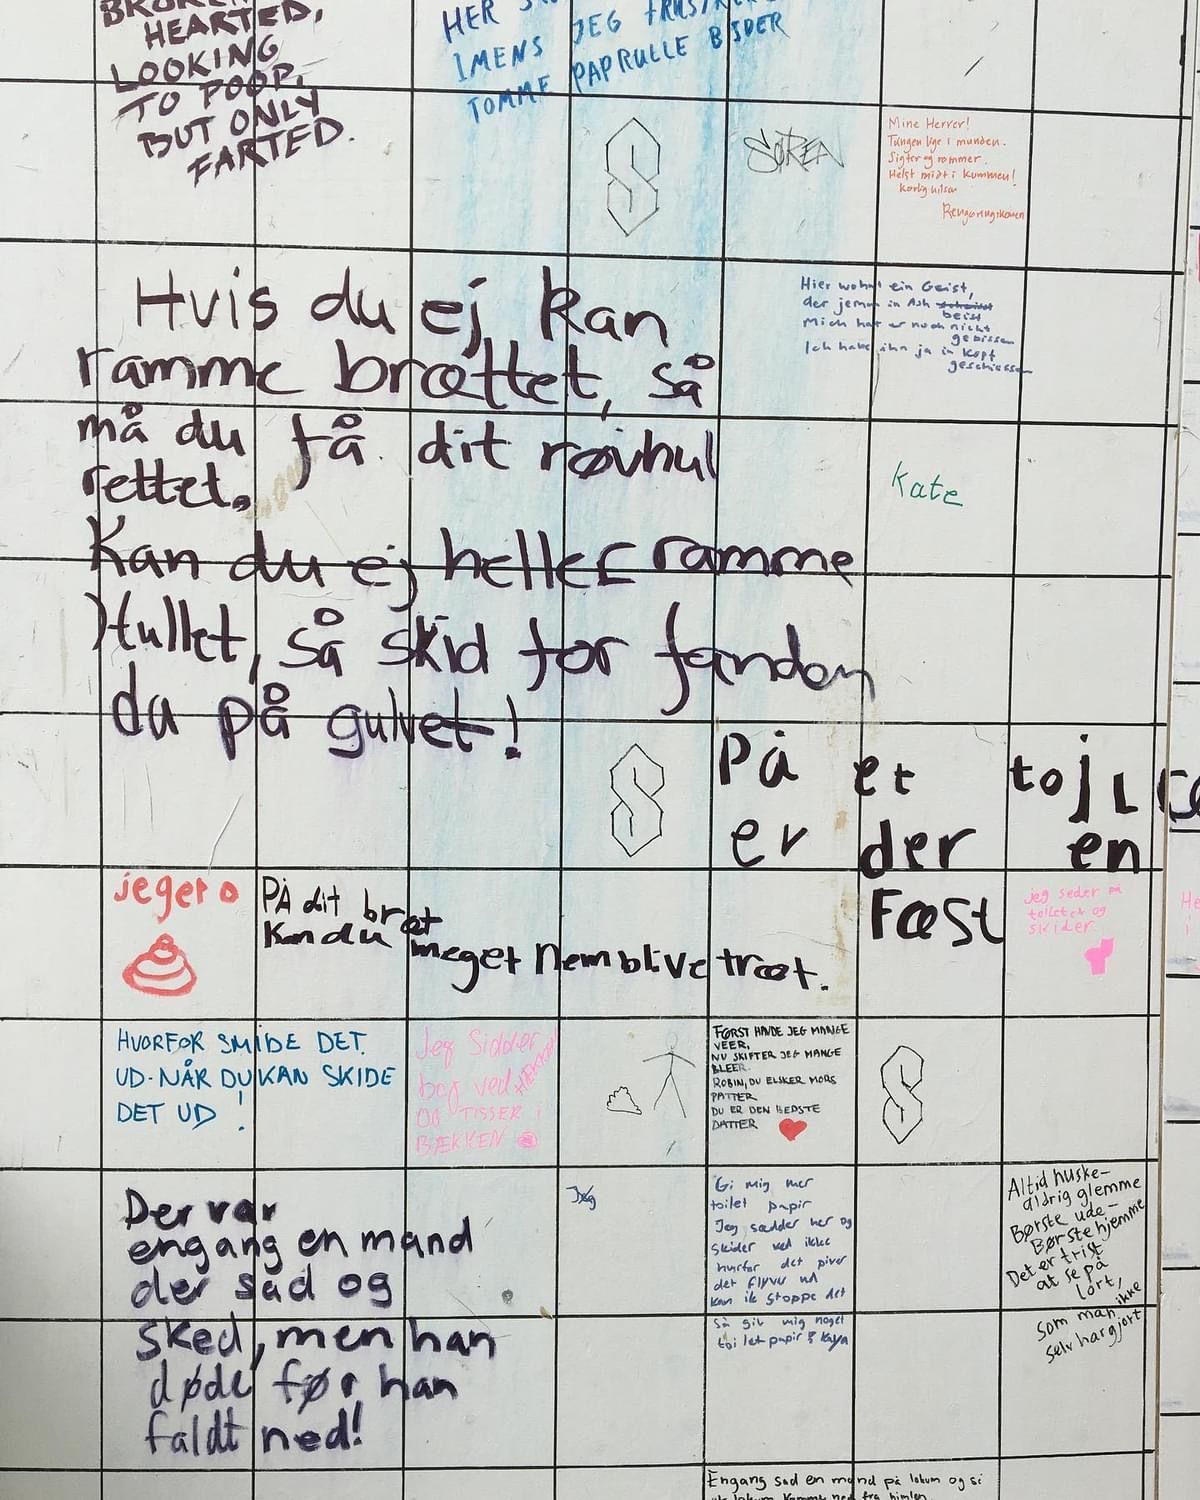 HEARTED,
LOOKING
TO POOP,
BUT ONLY
FARTED.
HER
JEG
IMENS
TOMME PAPRULLE BIDER
SØREN
Mine Herrer!
Tungen lige i munden.
Sigter og rammer.
Helst midt i kummen!
Kærlig hilsen
Hvis du ej kan
ramme brættet, så
må du få dit røvhul
rettet.
Kan du ej heller ramme
hullet, så skid for fanden
du på gulvet!
Hier wohnt ein Geist,
der jemm in Ash
beist
Mich hat er noch nicht
gebissen
Ich habe ihn ja in Kopf
geschiessen
Kate
På et
er der en
Fæst
jeger
På dit bræt
Kan du meget nem blive træt.
jeg seder på
toiletet og
skider.
HVORFOR SMIDE DET
UD. NÅR DU KAN SKIDE
DET UD!
Jeg Sidder
bag ved HÆKKEN
OG TISSER i
BÆKKEN
FØRST HAVDE JEG MANGE
VEER,
NU SKIFTER JEG MANGE
BLEER.
ROBIN, DU ELSKER MORS
PATTER
DU ER DEN BEDSTE
DATTER
Der var
engang en mand
der sad og
sked, men han
døde før han
faldt ned!
Jeg
Gi mig mer
toilet papir
Jeg sædder her og
skider ved ikke
hvorfor det piver
det flyver ud
kan ik stoppe det
Så giv mig noget
toilet papir
Altid huske-
aldrig glemme
Børste ude-
Børste hjemme
Det er trist
at se på
lort,
som man ikke
selv har gjort
Engang sad en mand på lokum og
lokum fra himlen